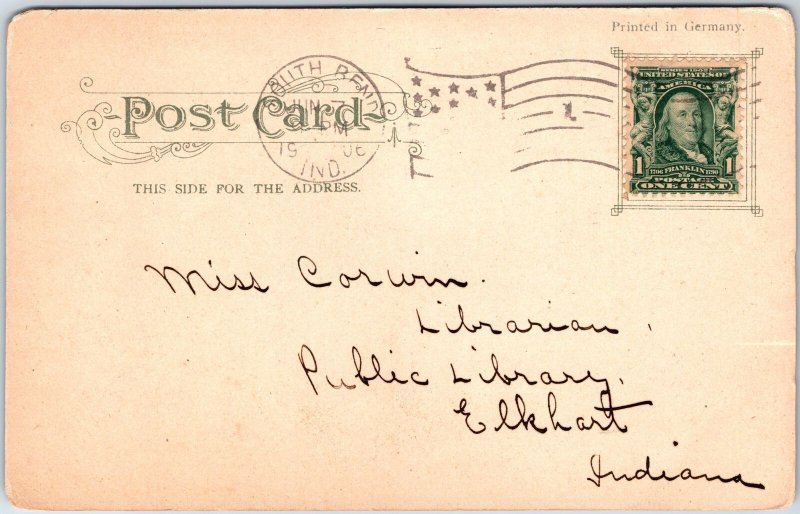 Printed in Germany.
POST CARD
THIS SIDE FOR THE ADDRESS.
SOUTH BEND
JUN 7
PM
1906
IND.
1
SERIES 1902
UNITED STATES OF
AMERICA
1706 FRANKLIN 1790
1 1
POSTAGE
ONE CENT
Miss Corwin.
Librarian,
Public Library,
Elkhart
Indiana